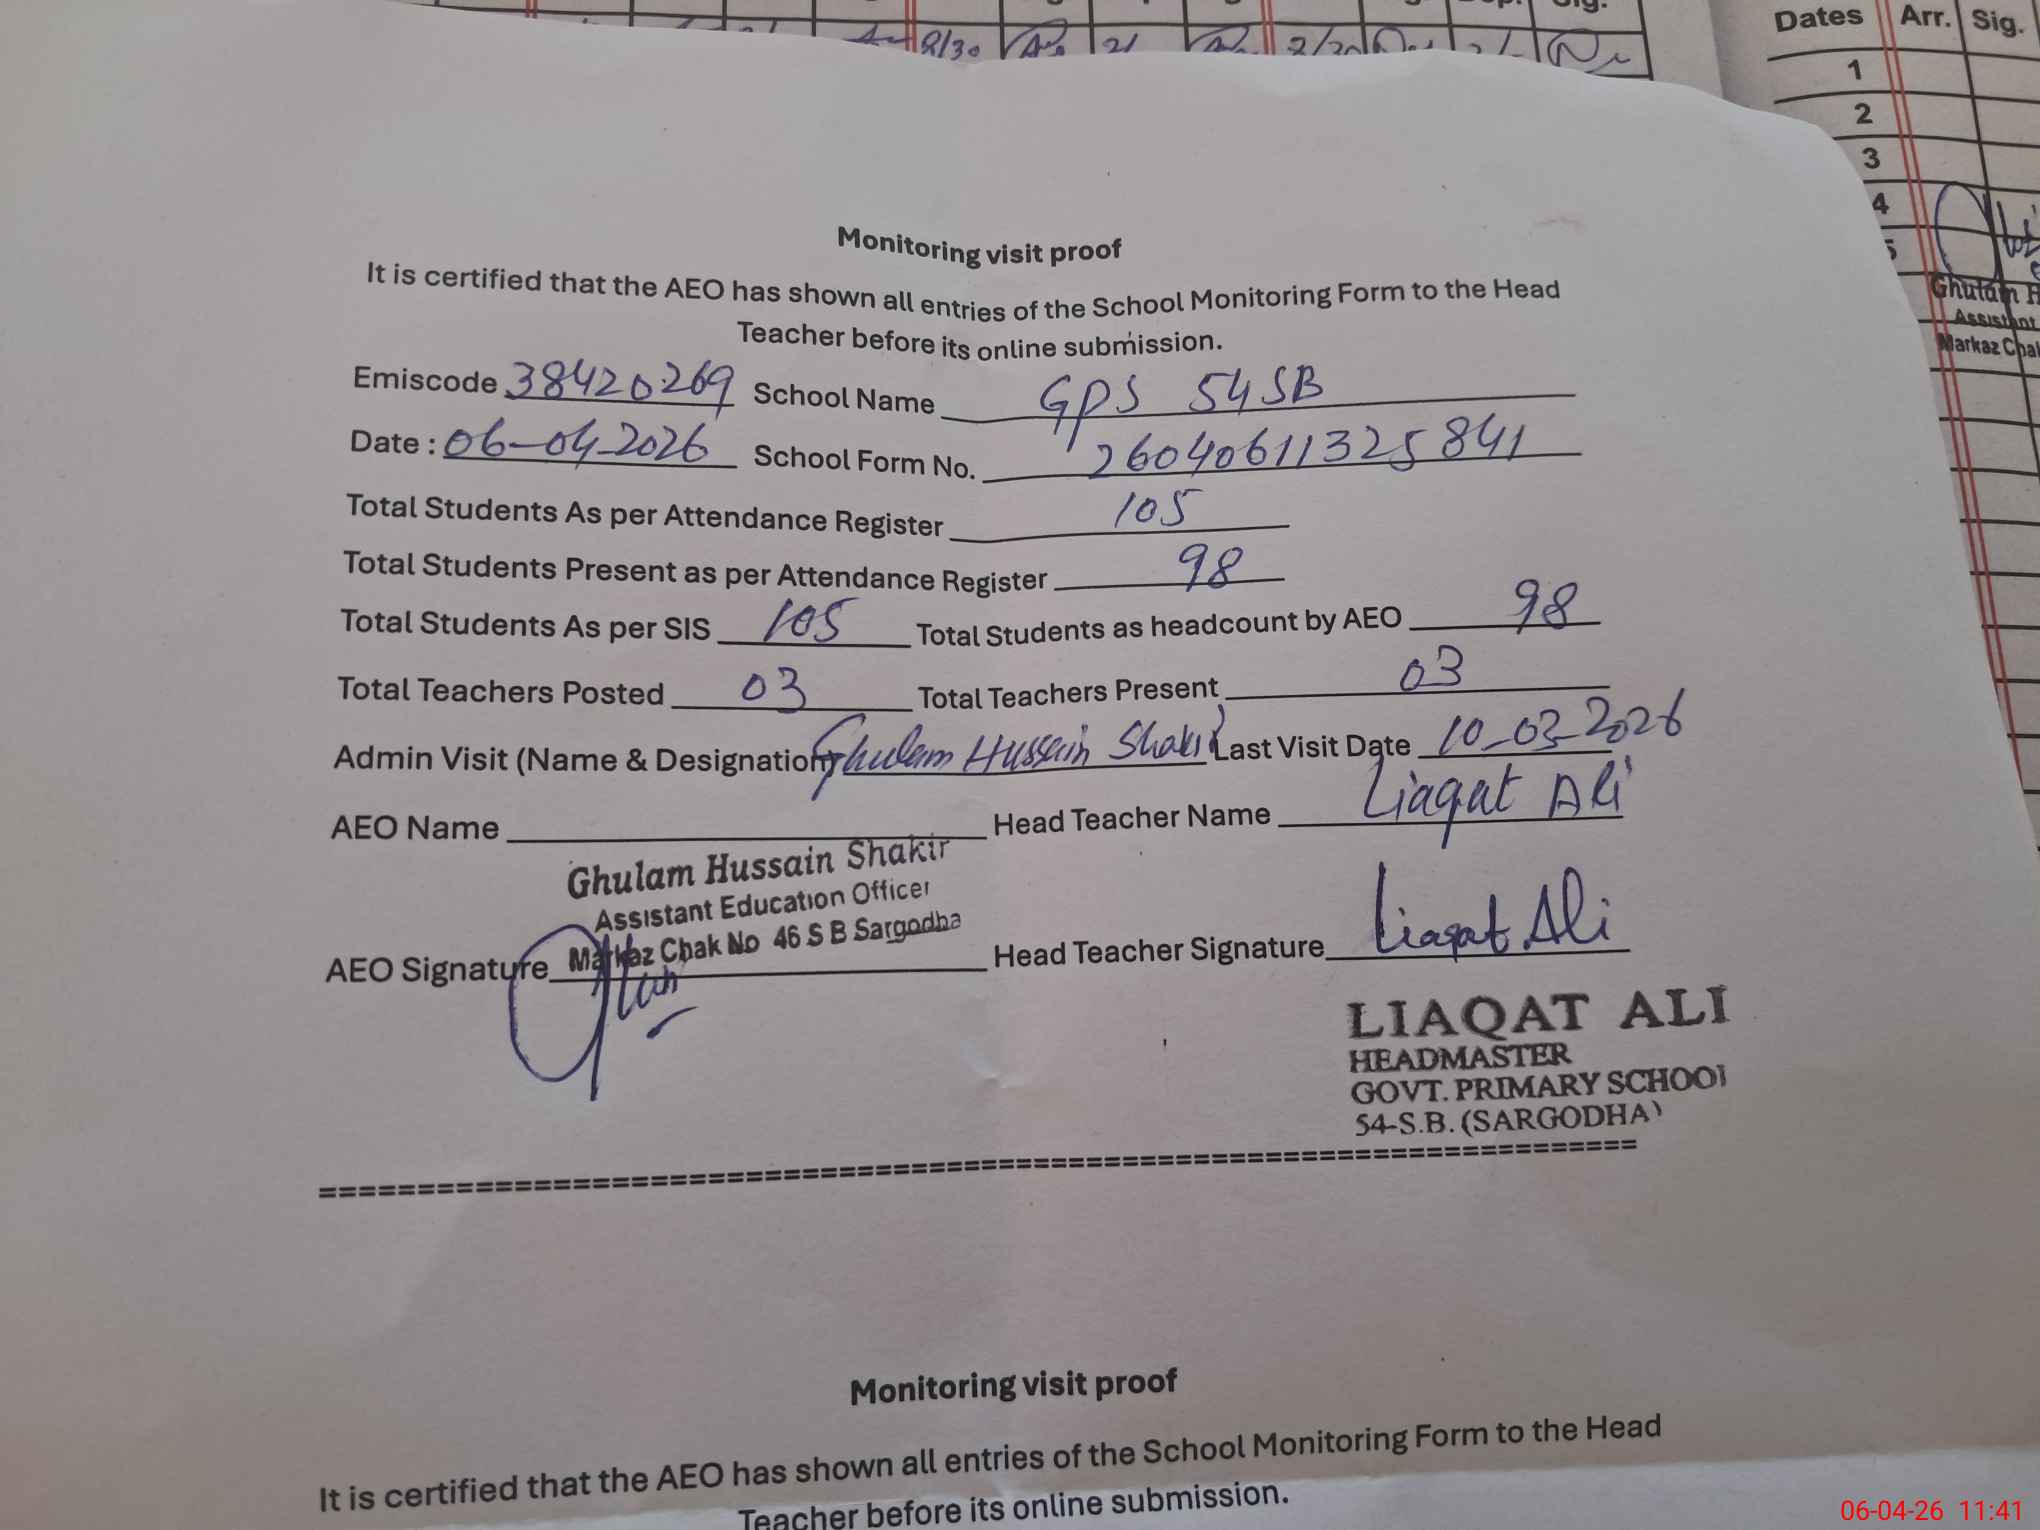 8/30 21 2/20
Dates Arr. Sig.
1
2
3
4
5
Ghulam H
Assistant
Markaz Chak
Monitoring visit proof
It is certified that the AEO has shown all entries of the School Monitoring Form to the Head
Teacher before its online submission.
Emiscode 38420269 School Name GPS 54 SB
Date : 06-04-2026 School Form No. 26040611325841
Total Students As per Attendance Register 105
Total Students Present as per Attendance Register 98
Total Students As per SIS 105 Total Students as headcount by AEO 98
Total Teachers Posted 03 Total Teachers Present 03
Admin Visit (Name & Designation) Ghulam Hussain Shakir Last Visit Date 10-03-2026
AEO Name Head Teacher Name Liaqat Ali
Ghulam Hussain Shakir
Assistant Education Officer
Markaz Chak No 46 S B Sargodha
AEO Signature Head Teacher Signature Liaqat Ali
LIAQAT ALI
HEADMASTER
GOVT. PRIMARY SCHOOL
54-S.B. (SARGODHA)
Monitoring visit proof
It is certified that the AEO has shown all entries of the School Monitoring Form to the Head
Teacher before its online submission.
06-04-26 11:41